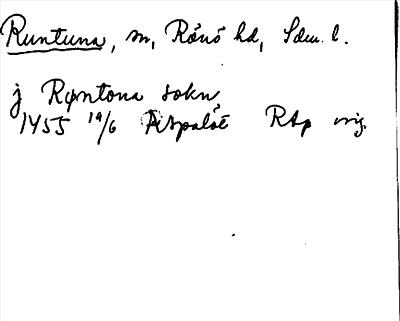 Runtuna, sn, Rönö hd, Sdm. l.
j Røntona sokn,
1455 19/6 Aspalöt RAp orig.